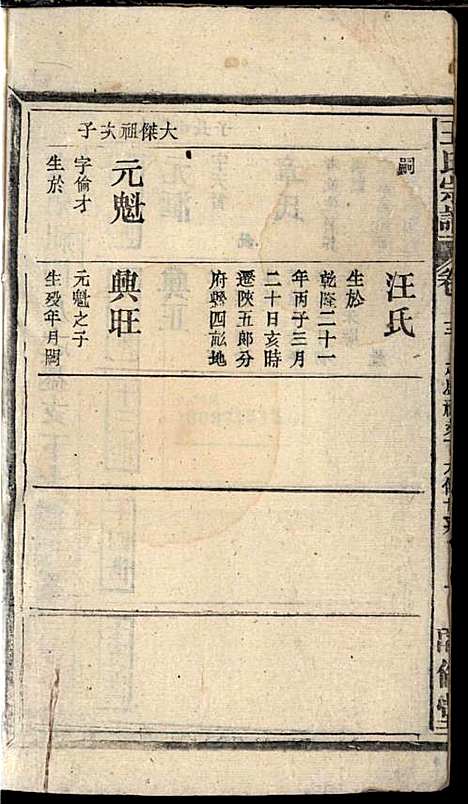 王氏宗譜
卷
嗣
大傑祖次子
元魁
字倫才
生於
汪氏
生於
乾隆二十一
年丙子三月
二十日亥時
遷陝五郎分
府 四 地
興旺
元魁之子
生歿年月闕